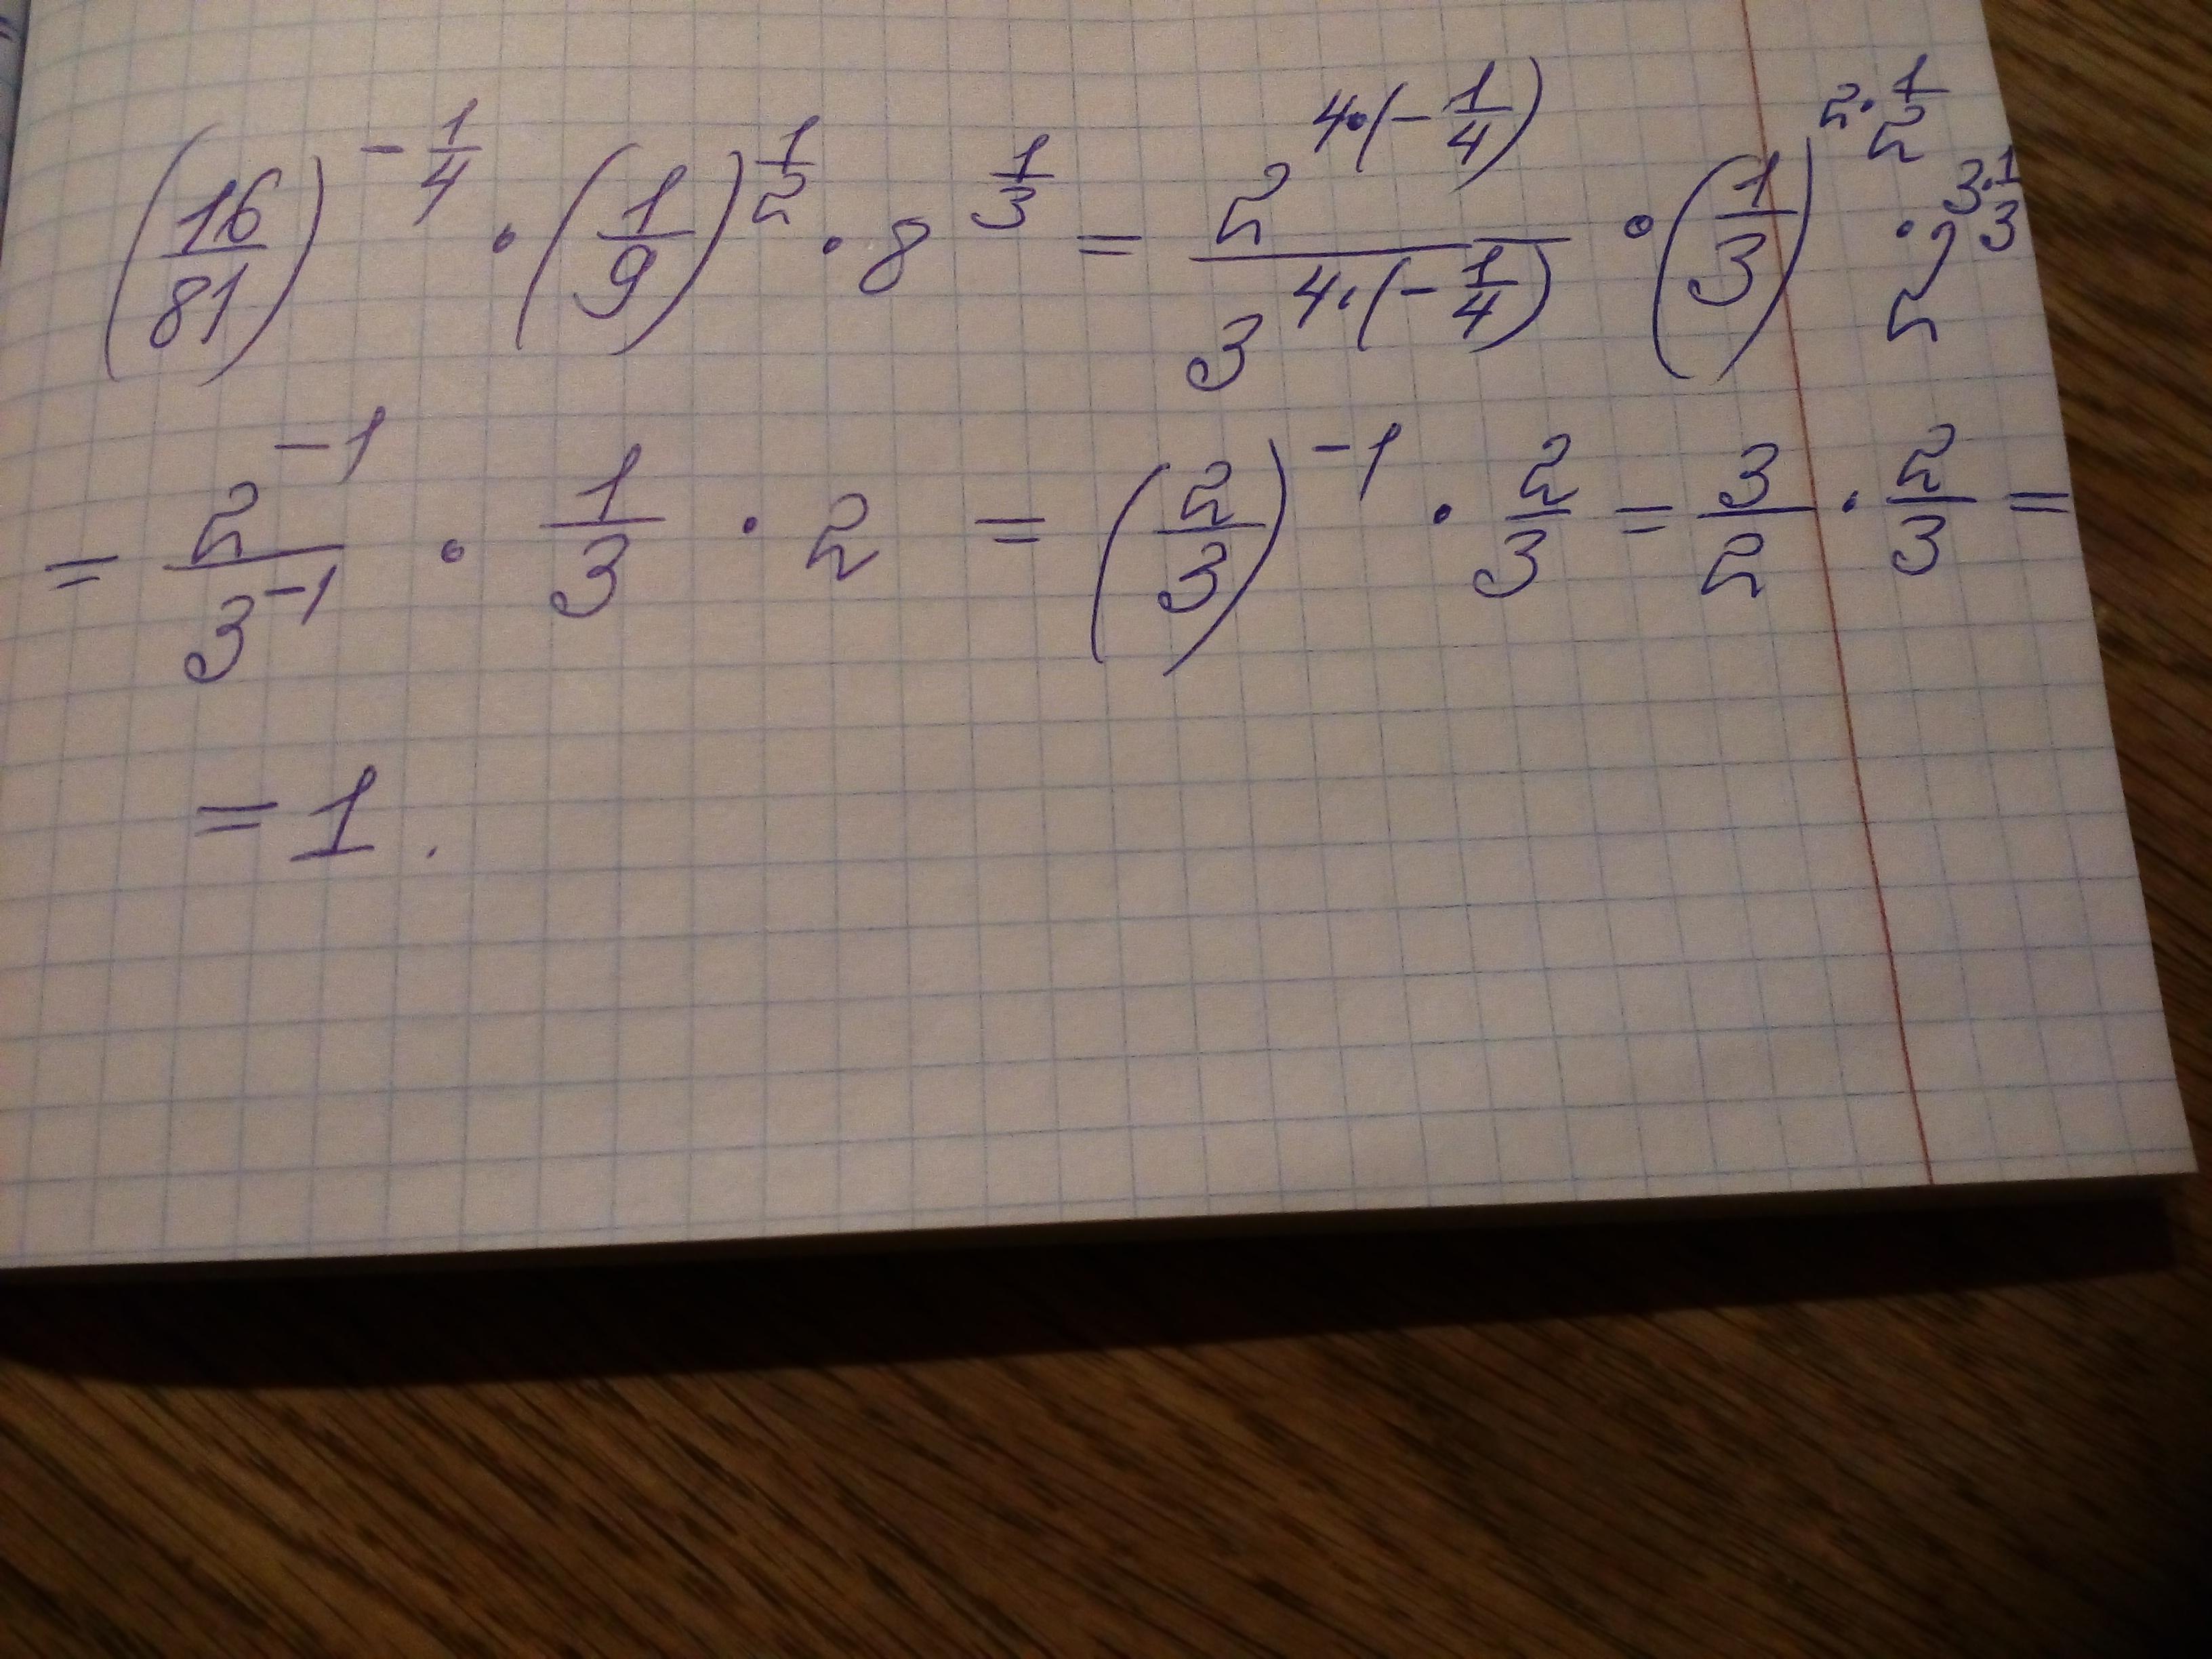 (16/81)^(-1/4) · (1/9)^(1/2) · 8^(1/3) = 2^(4·(-1/4)) / 3^(4·(-1/4)) · (1/3)^(2·1/2) · 2^(3·1/3)
= 2^(-1) / 3^(-1) · 1/3 · 2 = (2/3)^(-1) · 2/3 = 3/2 · 2/3 =
= 1.